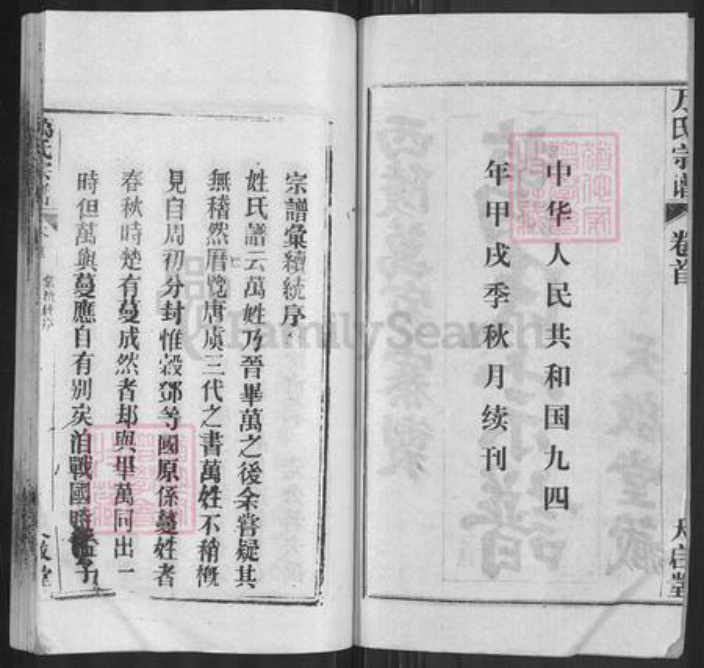 万氏宗譜
卷首
中华人民共和国九四
年甲戌季秋月续刊
宗譜彙續統序
姓氏譜云萬姓乃晉畢萬之後余嘗疑其
無稽然厯覽唐虞三代之書萬姓不稍概
見自周初分封惟穀鄧等國原係蔓姓者
春秋時楚有蔓成然者却與畢萬同出一
時但萬與蔓應自有別矣洎戰國時
FamilySearch